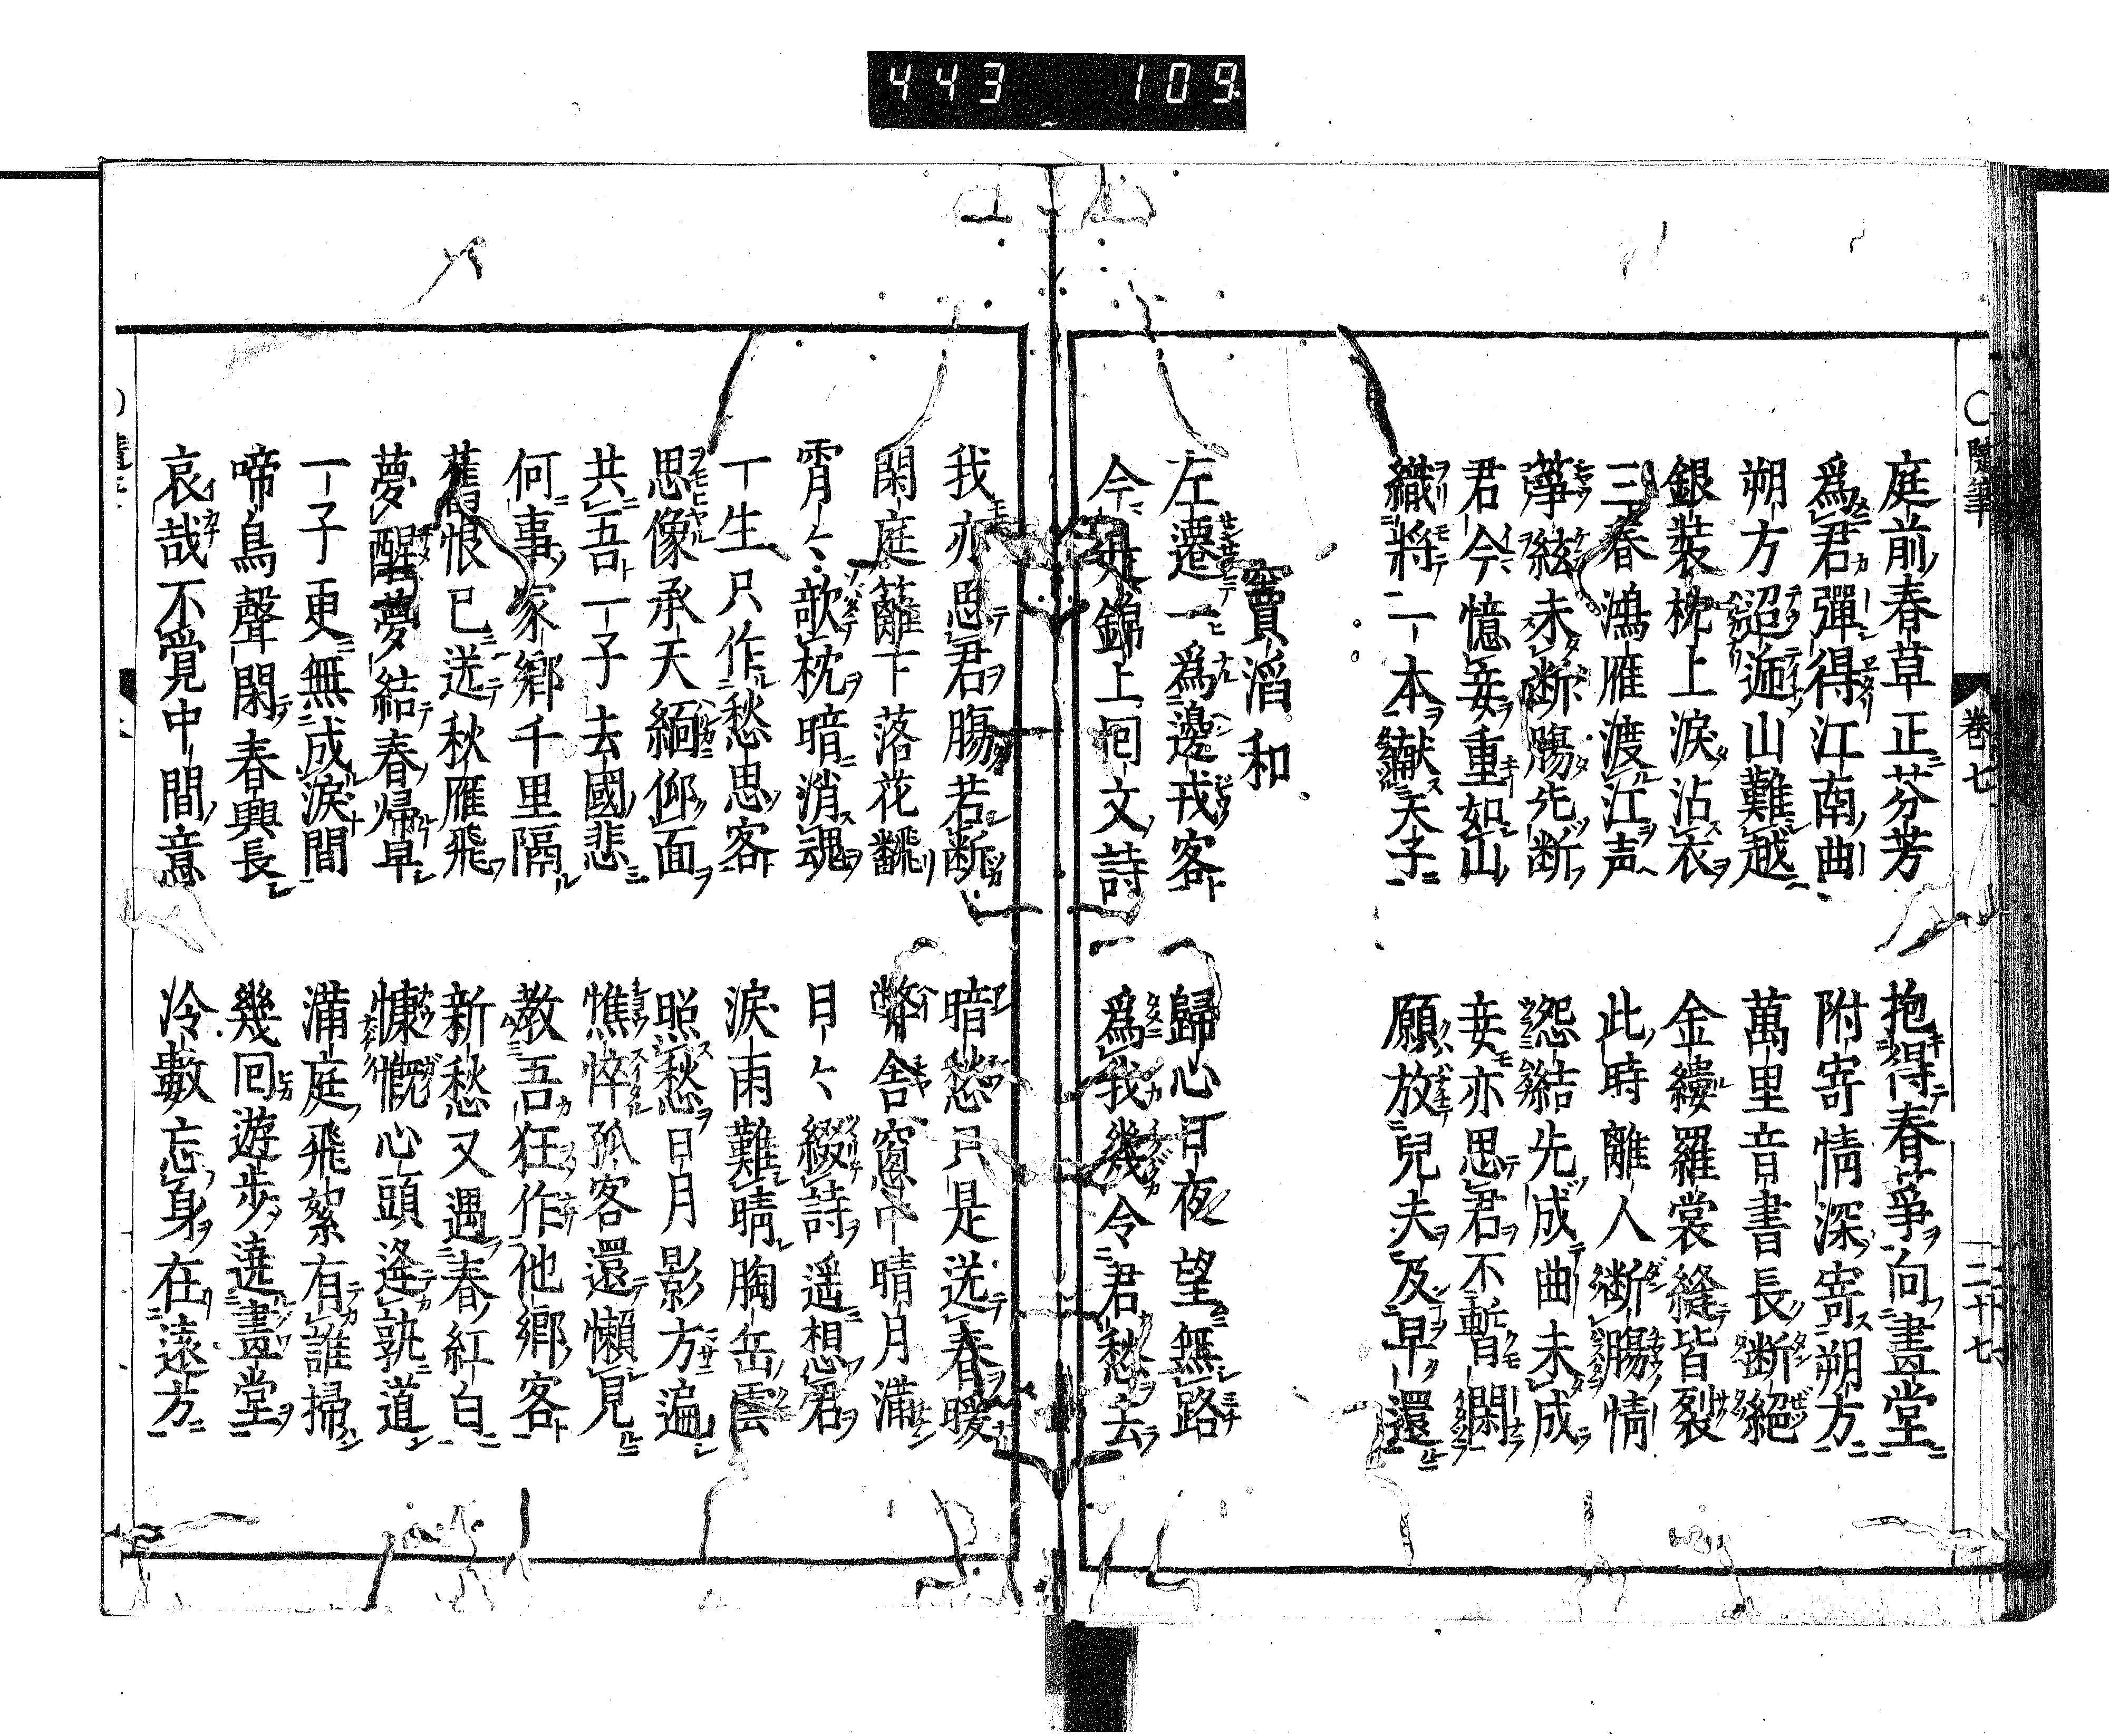 443 109
○隨筆 卷七 二十七
庭前春草正芬芳 抱得春箏向畫堂
爲君彈得江南曲 附寄情深寄朔方
朔方迢遞山難越 萬里音書長断絕
銀裝枕上淚沾衣 金縷羅裳縫皆裂
三春鴻雁渡江声 此時離人斷腸情
箏絃未断腸先断 怨結先成曲未成
君今憶妾重如山 妾亦思君不暫閑
織將一本献天子 願放兒夫及早還
竇滔和
左遷一爲邊戎客 歸心日夜望無路
今見錦上回文詩 爲我幾令君愁去
我亦思君腸若断 暗愁只是送春暖
閑庭籬下落花飜 弊舍窓中晴月滿
宵々欹枕暗消魂 日々綴詩遥想君
一生只作愁思客 淚雨難晴胸岳雲
思像承天緬仰面 照愁日月影方遍
共吾一子去國悲 憔悴孤客還懶見
何事家鄉千里隔 教吾狂作他鄉客
舊恨已送秋雁飛 新愁又遇春紅白
夢醒夢結春帰早 慷慨心頭逢孰道
一子更無成淚間 滿庭飛絮有誰掃
啼鳥聲閑春興長 幾回遊歩遶畫堂
哀哉不覚中間意 冷數忘身在遠方